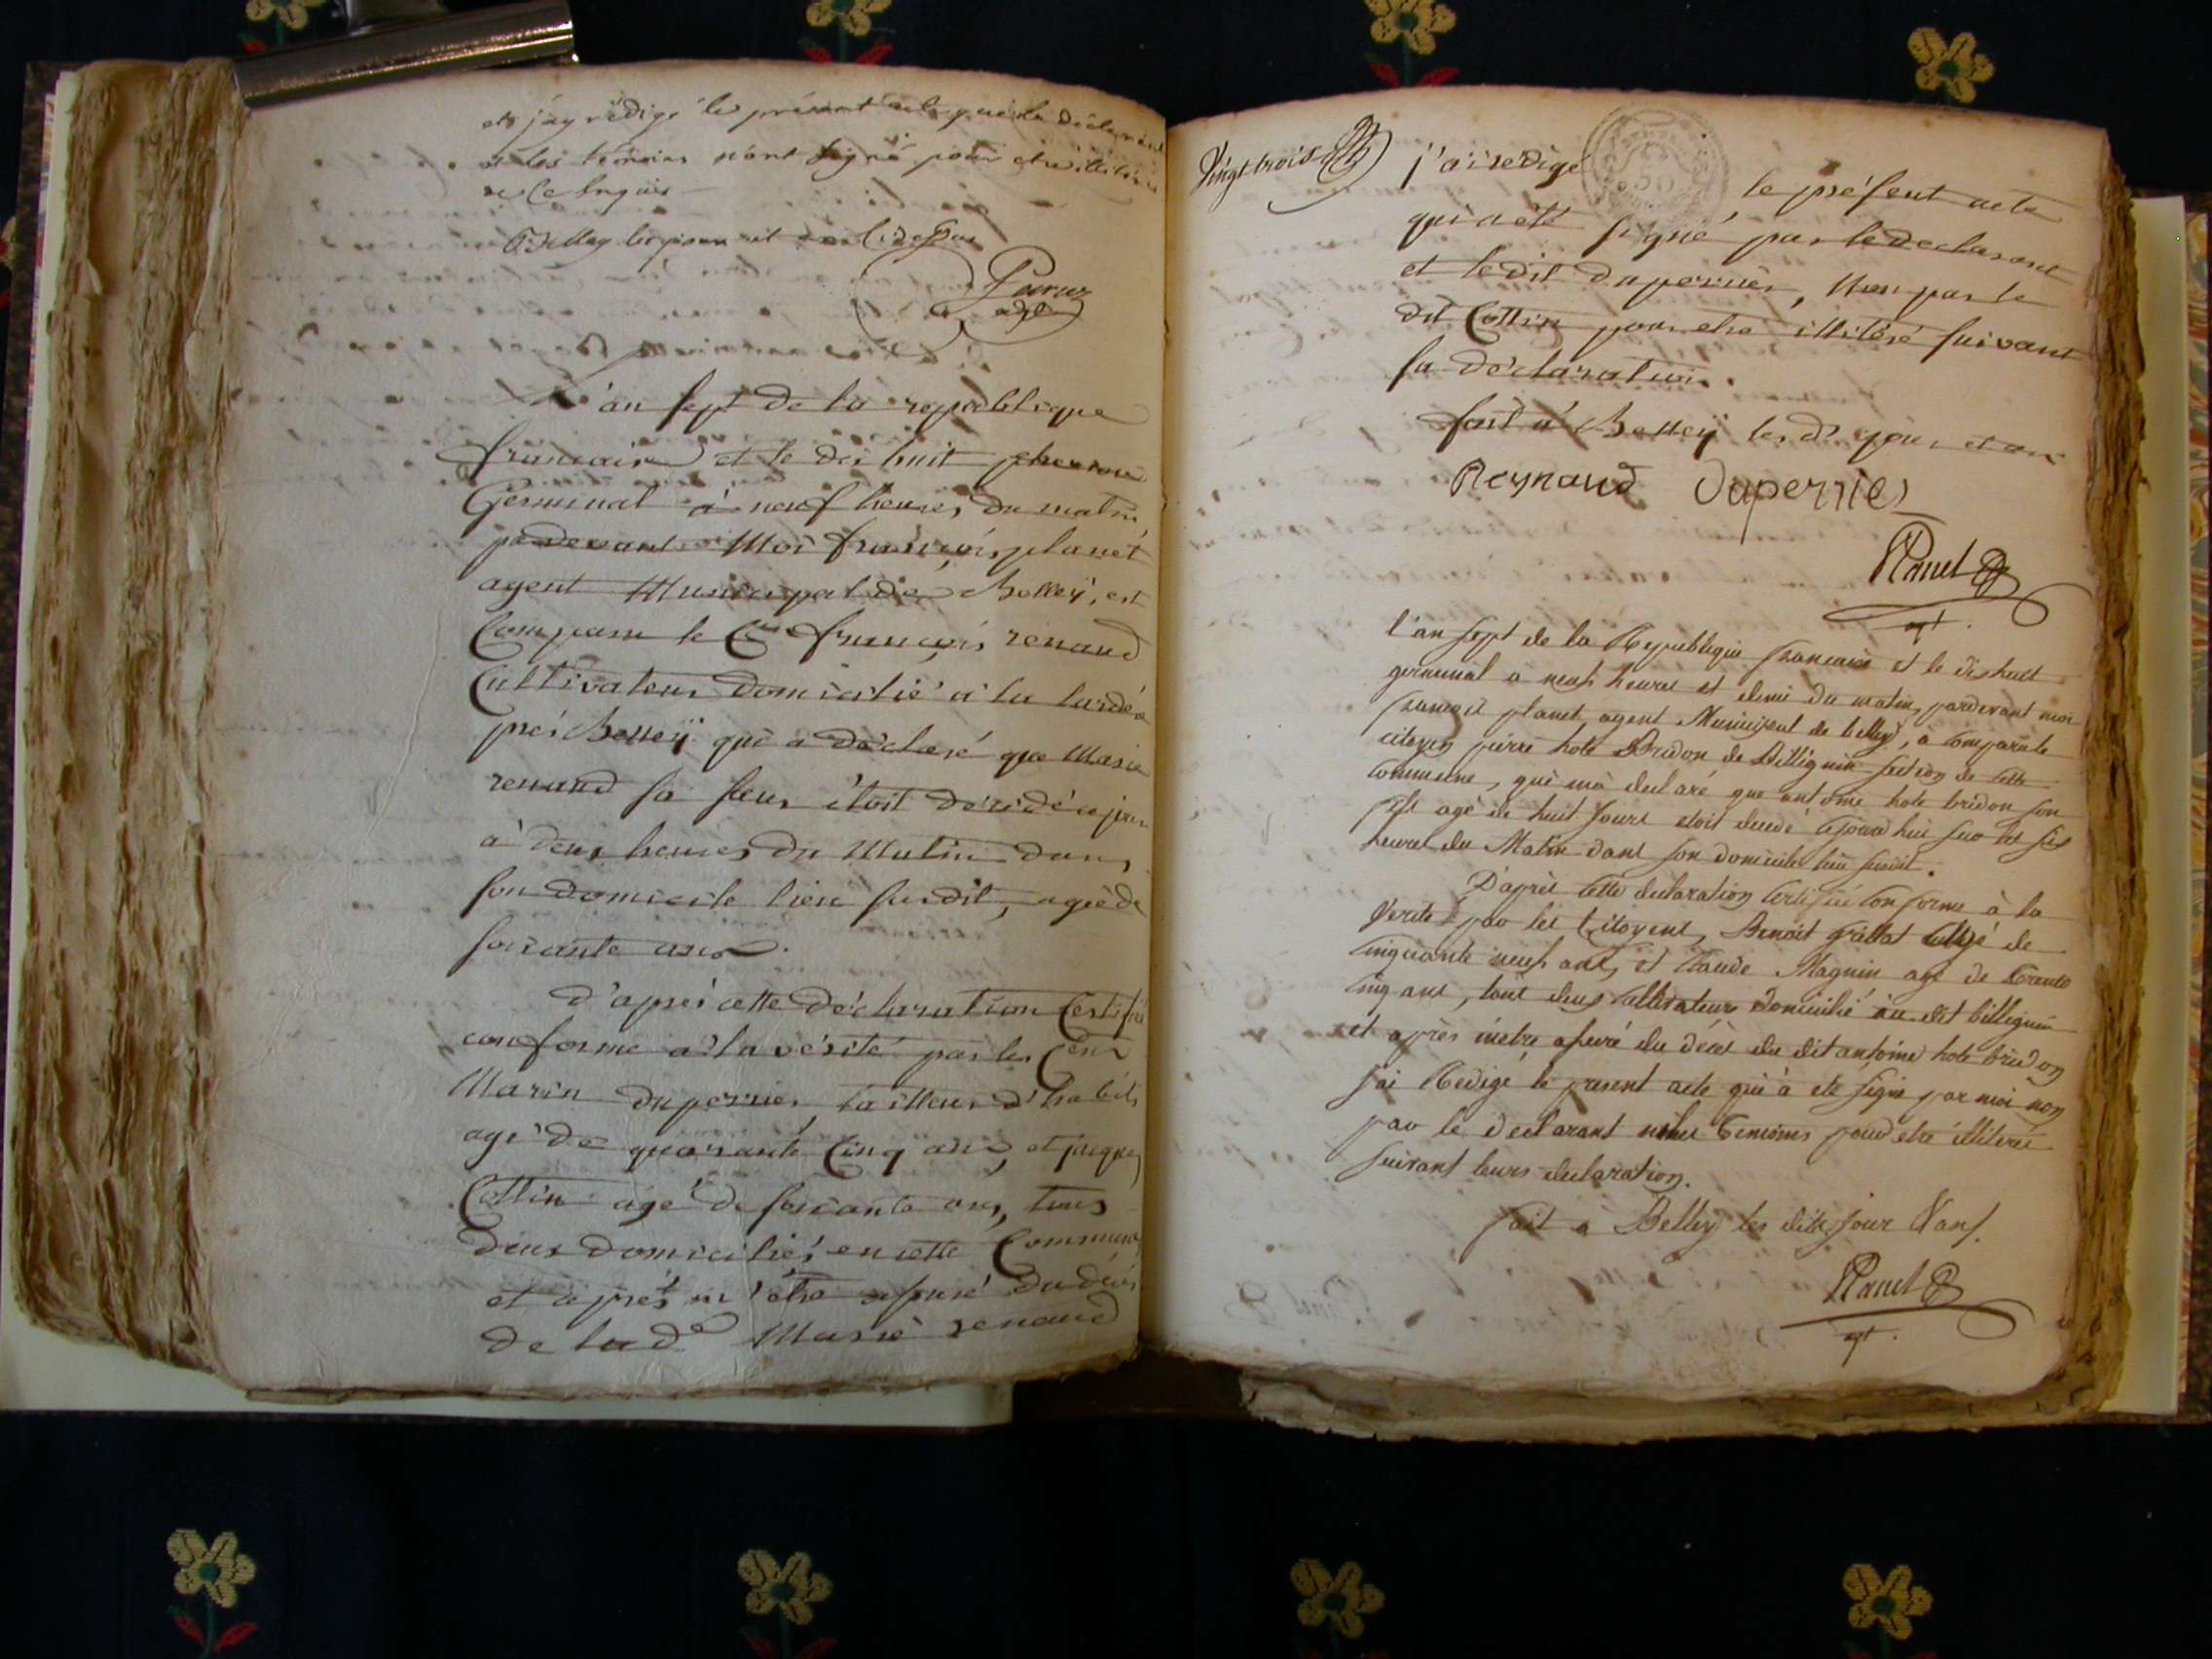 et j'ay rédigé le présent acte que le déclarant
et les témoins n'ont signé pour etre illitérés
de ce enquis
à Belley les jour et an ci dessus
L'an sept de la republique
francaise et le dix huit
Germinal à neuf heures du matin
pardevant Moi françois planet
agent Municipal de Belley, est
Comparu le Cen françois renaud
Cultivateur domicilié a la
près Belley qui a déclaré que Marie
renaud sa sœur étoit décédée ce jour
à deux heures du Matin dans
son domicile lieu susdit, agée de
soixante ans.
d'après cette déclaration Certifiée
conforme a la vérité par les Cens
Marin duperrier tailleur d'habits
agé de quarante Cinq ans, et jacques
Collin agé de soixante ans, tous
deux domiciliés en cette Commune
et après m'être assuré du décès
de la de Marie renaud
Vingt trois
j'ai redigé le présent acte
qui a été signé par le declarant
et ledit duperrier, Non par le
dit Collin pour etre illitéré suivant
sa déclaration.
fait à Belley les ds jour et an
Reynaud Duperrier
Planet
agt.
l'an sept de la Republique francaise et le dix huit
germinal a neuf heures et demi du matin, pardevant moi
francois planet agent Municipal de belley, a comparu le
citoyen pierre hote Bridon de Billignin section de cette
commune, qui m'à declaré que antoine hote bridon son
fils agé de huit jours etoit decedé cejourd'hui sur les six
heures du Matin dans son domicile lieu susdit.
D'après cette declaration certifiée conforme à la
verité par les Citoyens, Benoit agé de
cinquante neuf ans, et Claude Magnin agé de trente
cinq ans, tous deux cultivateurs domicilié au dit billignin
et après m'etre assuré du décès du dit antoine hote bridon
j'ai Redigé le present acte qui à eté signé par moi non
par le declarant ni les temoins pour etre illiteré
suivant leurs declaration.
fait a Belley les dits jour & an.
Planet
agt.